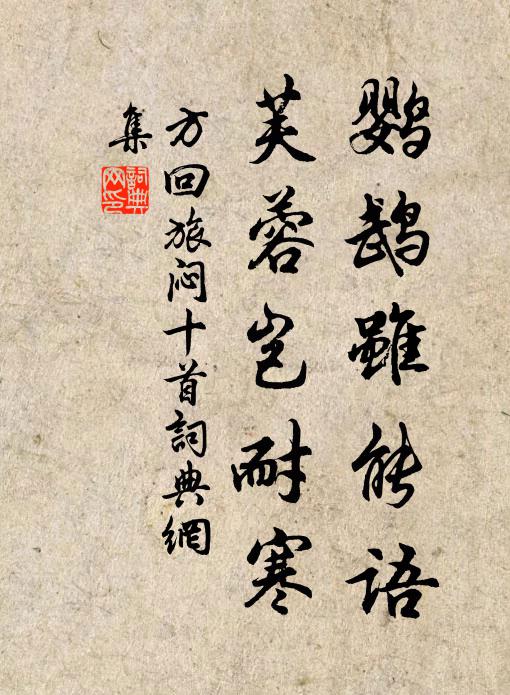 鹦鹉雖能語
芙蓉岂耐寒
方回旅闷十首詞典網
集
詞典網印